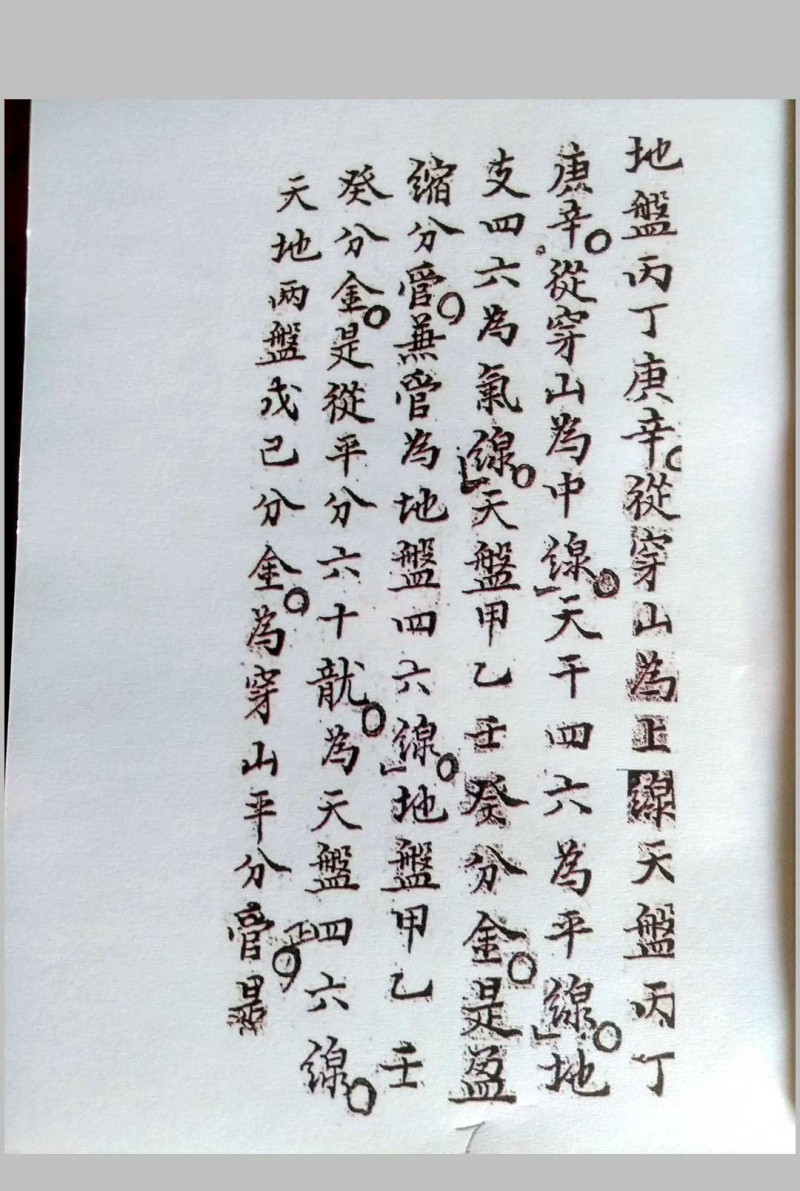 地盤丙丁庚辛。從穿山為上線天盤丙丁
庚辛。從穿山為中線。天干四六為平線。地
支四六為氣線。天盤甲乙壬癸分金。是盈
縮分管。兼管為地盤四六線。地盤甲乙壬
癸分金。是從平分六十龍。為天盤四六線。
天地兩盤戊己分金。為穿山平分管。是